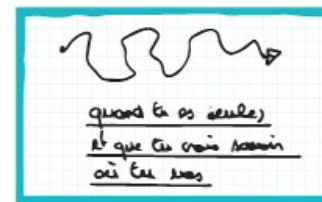 quand tu es seule,
et que tu crois savoir
où tu vas